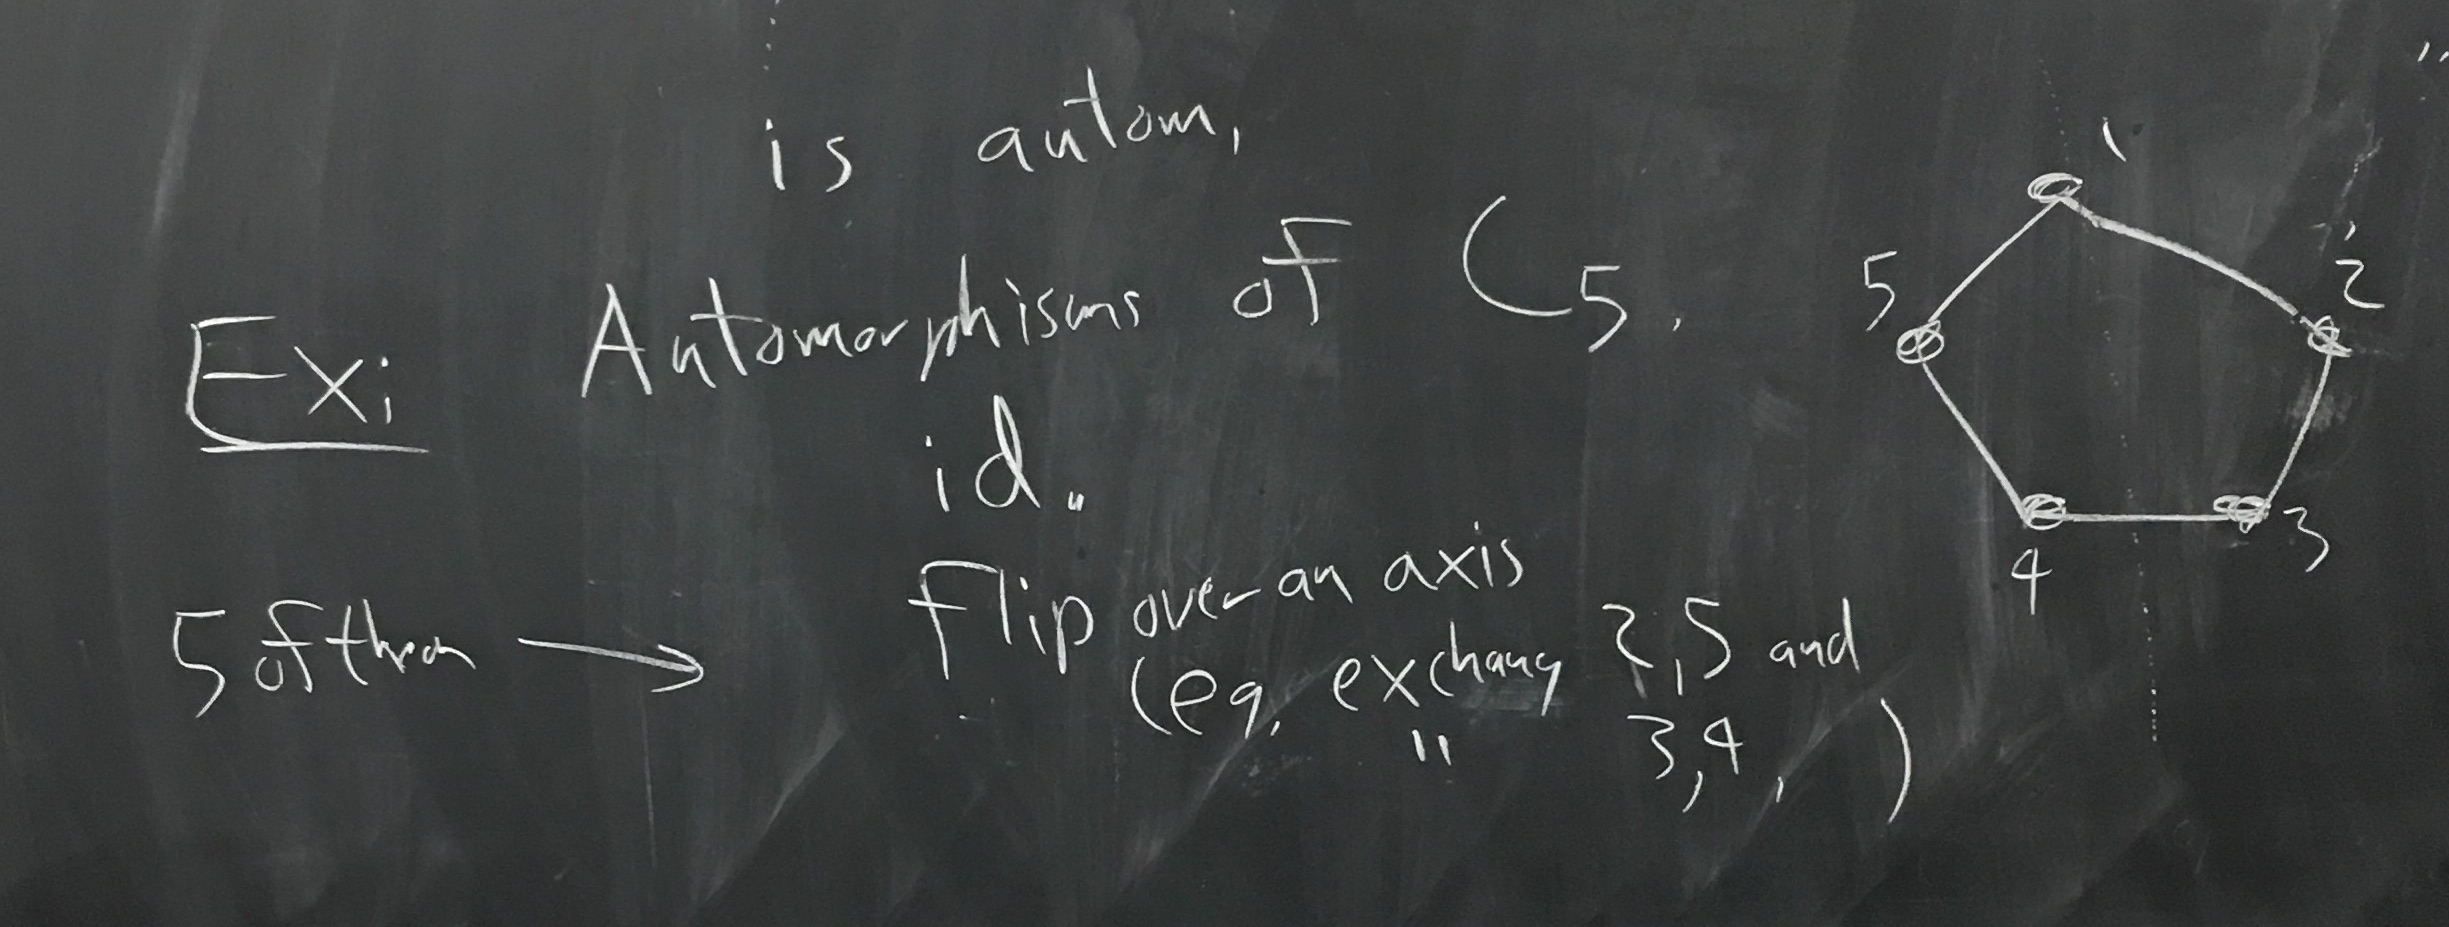 is autom.
Ex: Automorphisms of C5.
id.
5 of them → flip over an axis
(eg. exchang 2,5 and
" 3,4, )
1
2
3
4
5